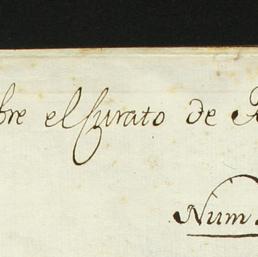 el Curato de
Num